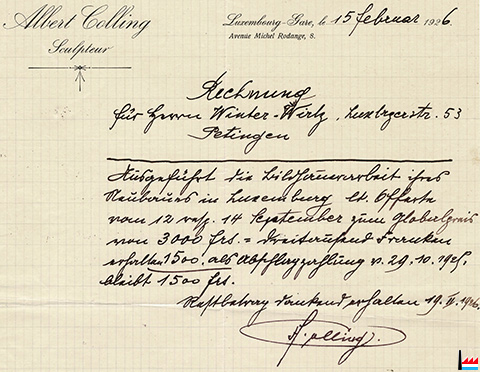 Albert Colling
Sculpteur
Luxembourg-Gare, le 15 februar 1926.
Avenue Michel Rodange, 8.
Rechnung
für Herrn Winter-Wirtz, Luxbgerstr. 53
Petingen
Ausgeführt die Bildhauerarbeit ihres
Neubaues in Luxemburg lt. Offerte
vom 12 resp. 14 September zum Globalpreis
von 3000 frs. = dreitausend Franken
erhalten 1500. als Abschlagzahlung v. 29.10.1925,
bleibt 1500 frs.
Restbetrag dankend erhalten 19. 1926.
A. Colling.